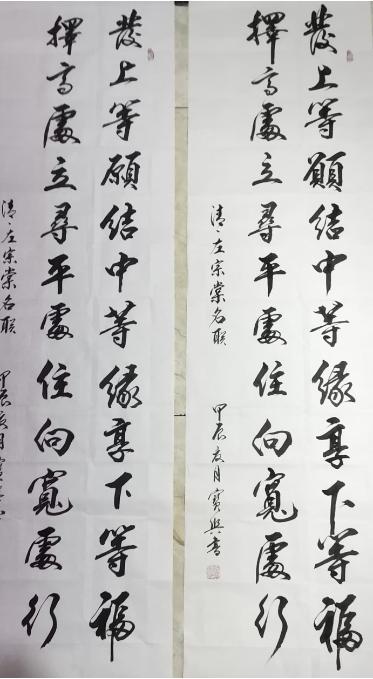 發上等願結中等緣享下等福
擇高處立尋平處住向寬處行
清、左宗棠名联 甲辰亥月寶興書
發上等願結中等緣享下等福
擇高處立尋平處住向寬處行
清、左宗棠名联 甲辰亥月寶